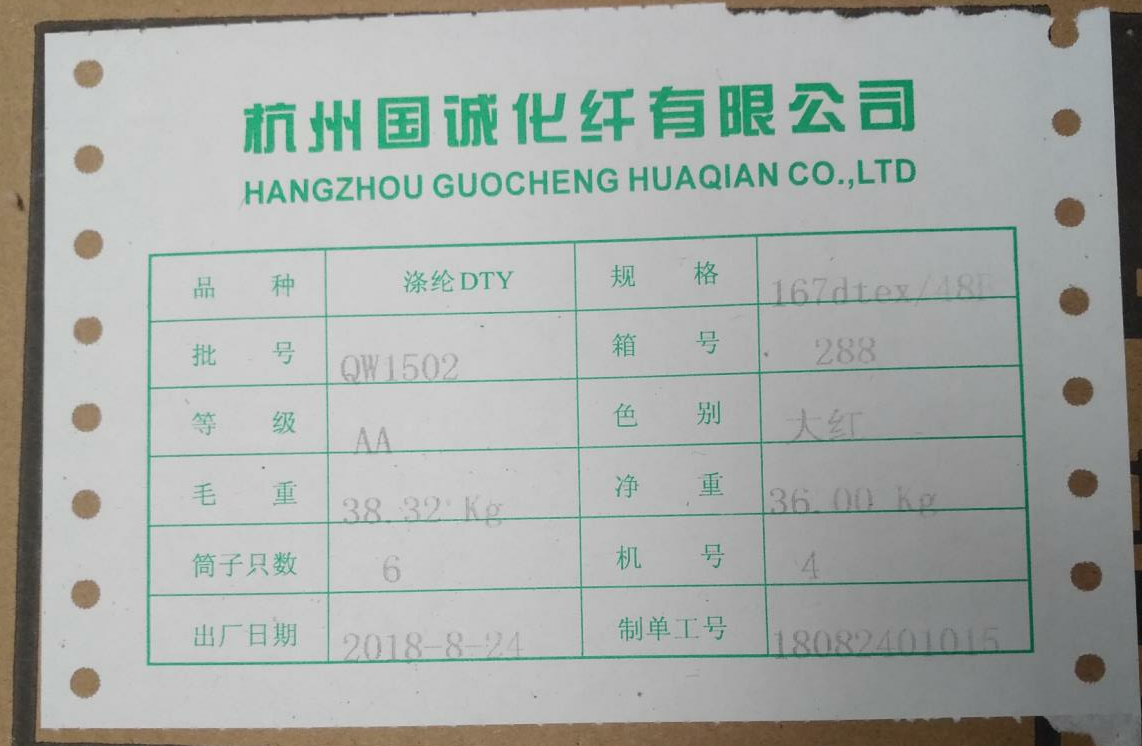 杭州国诚化纤有限公司
HANGZHOU GUOCHENG HUAQIAN CO.,LTD
品 种 涤纶DTY 规 格 167dtex/48F
批 号 QW1502 箱 号 288
等 级 AA 色 别 大红
毛 重 38.32 Kg 净 重 36.00 Kg
筒子只数 6 机 号 4
出厂日期 2018-8-24 制单工号 18082401015